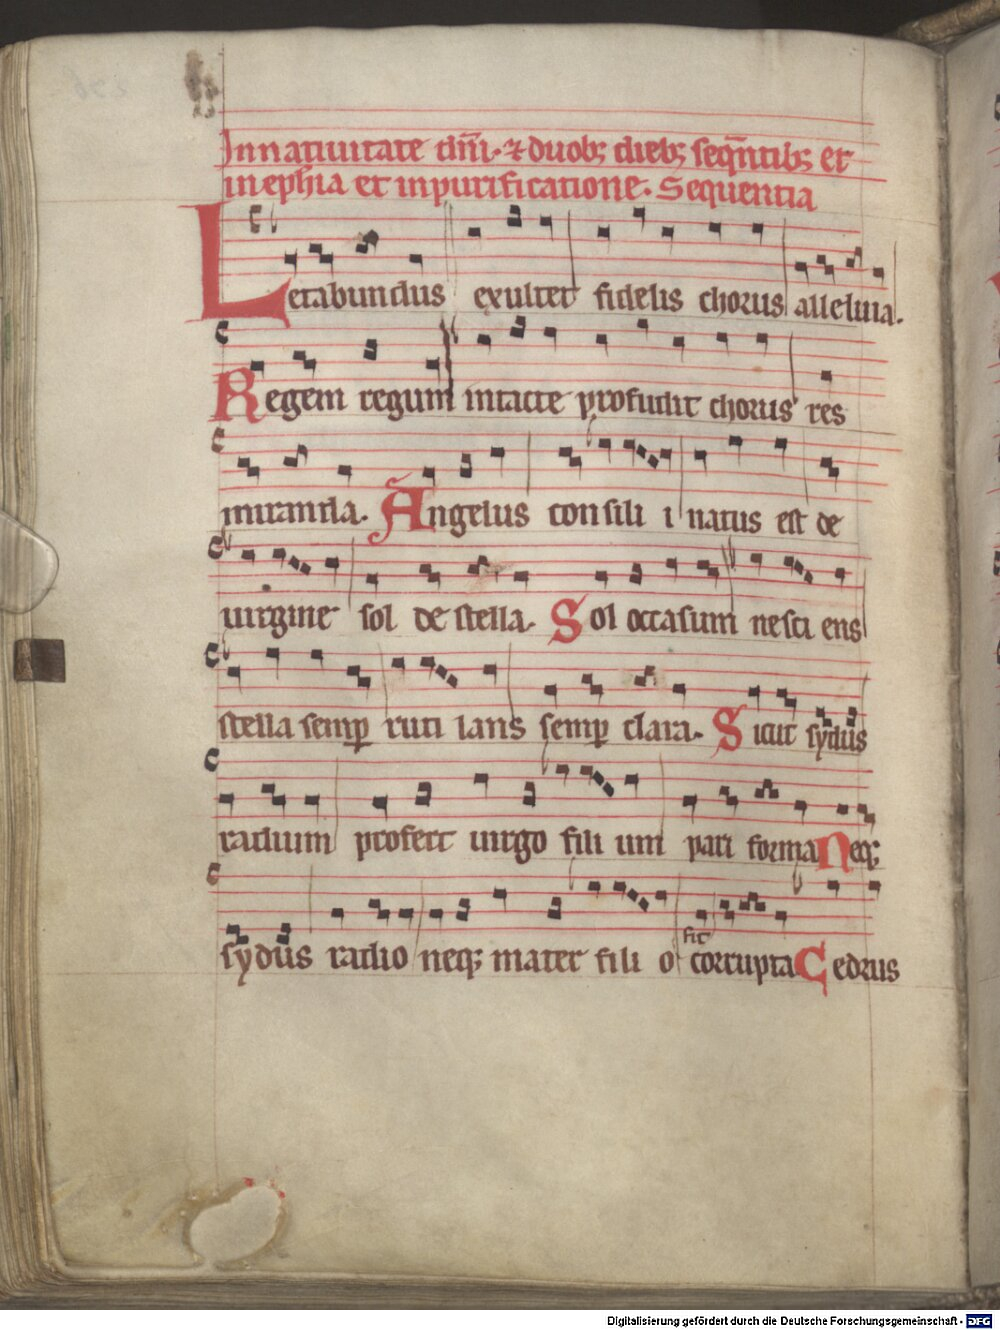 In natiuitate dn̄i. ⁊ duob; dieb; seq̄ntib; et
in eph̄ia et in purificatione. Sequentia
Letabundus exultet fidelis chorus alleluia.
Regem regum intacte profudit chorus res
miranda. Angelus consili i natus est de
uirgine sol de stella. Sol occasum nesci ens
stella semp ruti lans semp clara. Sicut sydus
radium profert uirgo fili um pari forma Neq;
sydus radio neq; mater fili o fit corrupta Cedrus
Digitalisierung gefördert durch die Deutsche Forschungsgemeinschaft - DFG